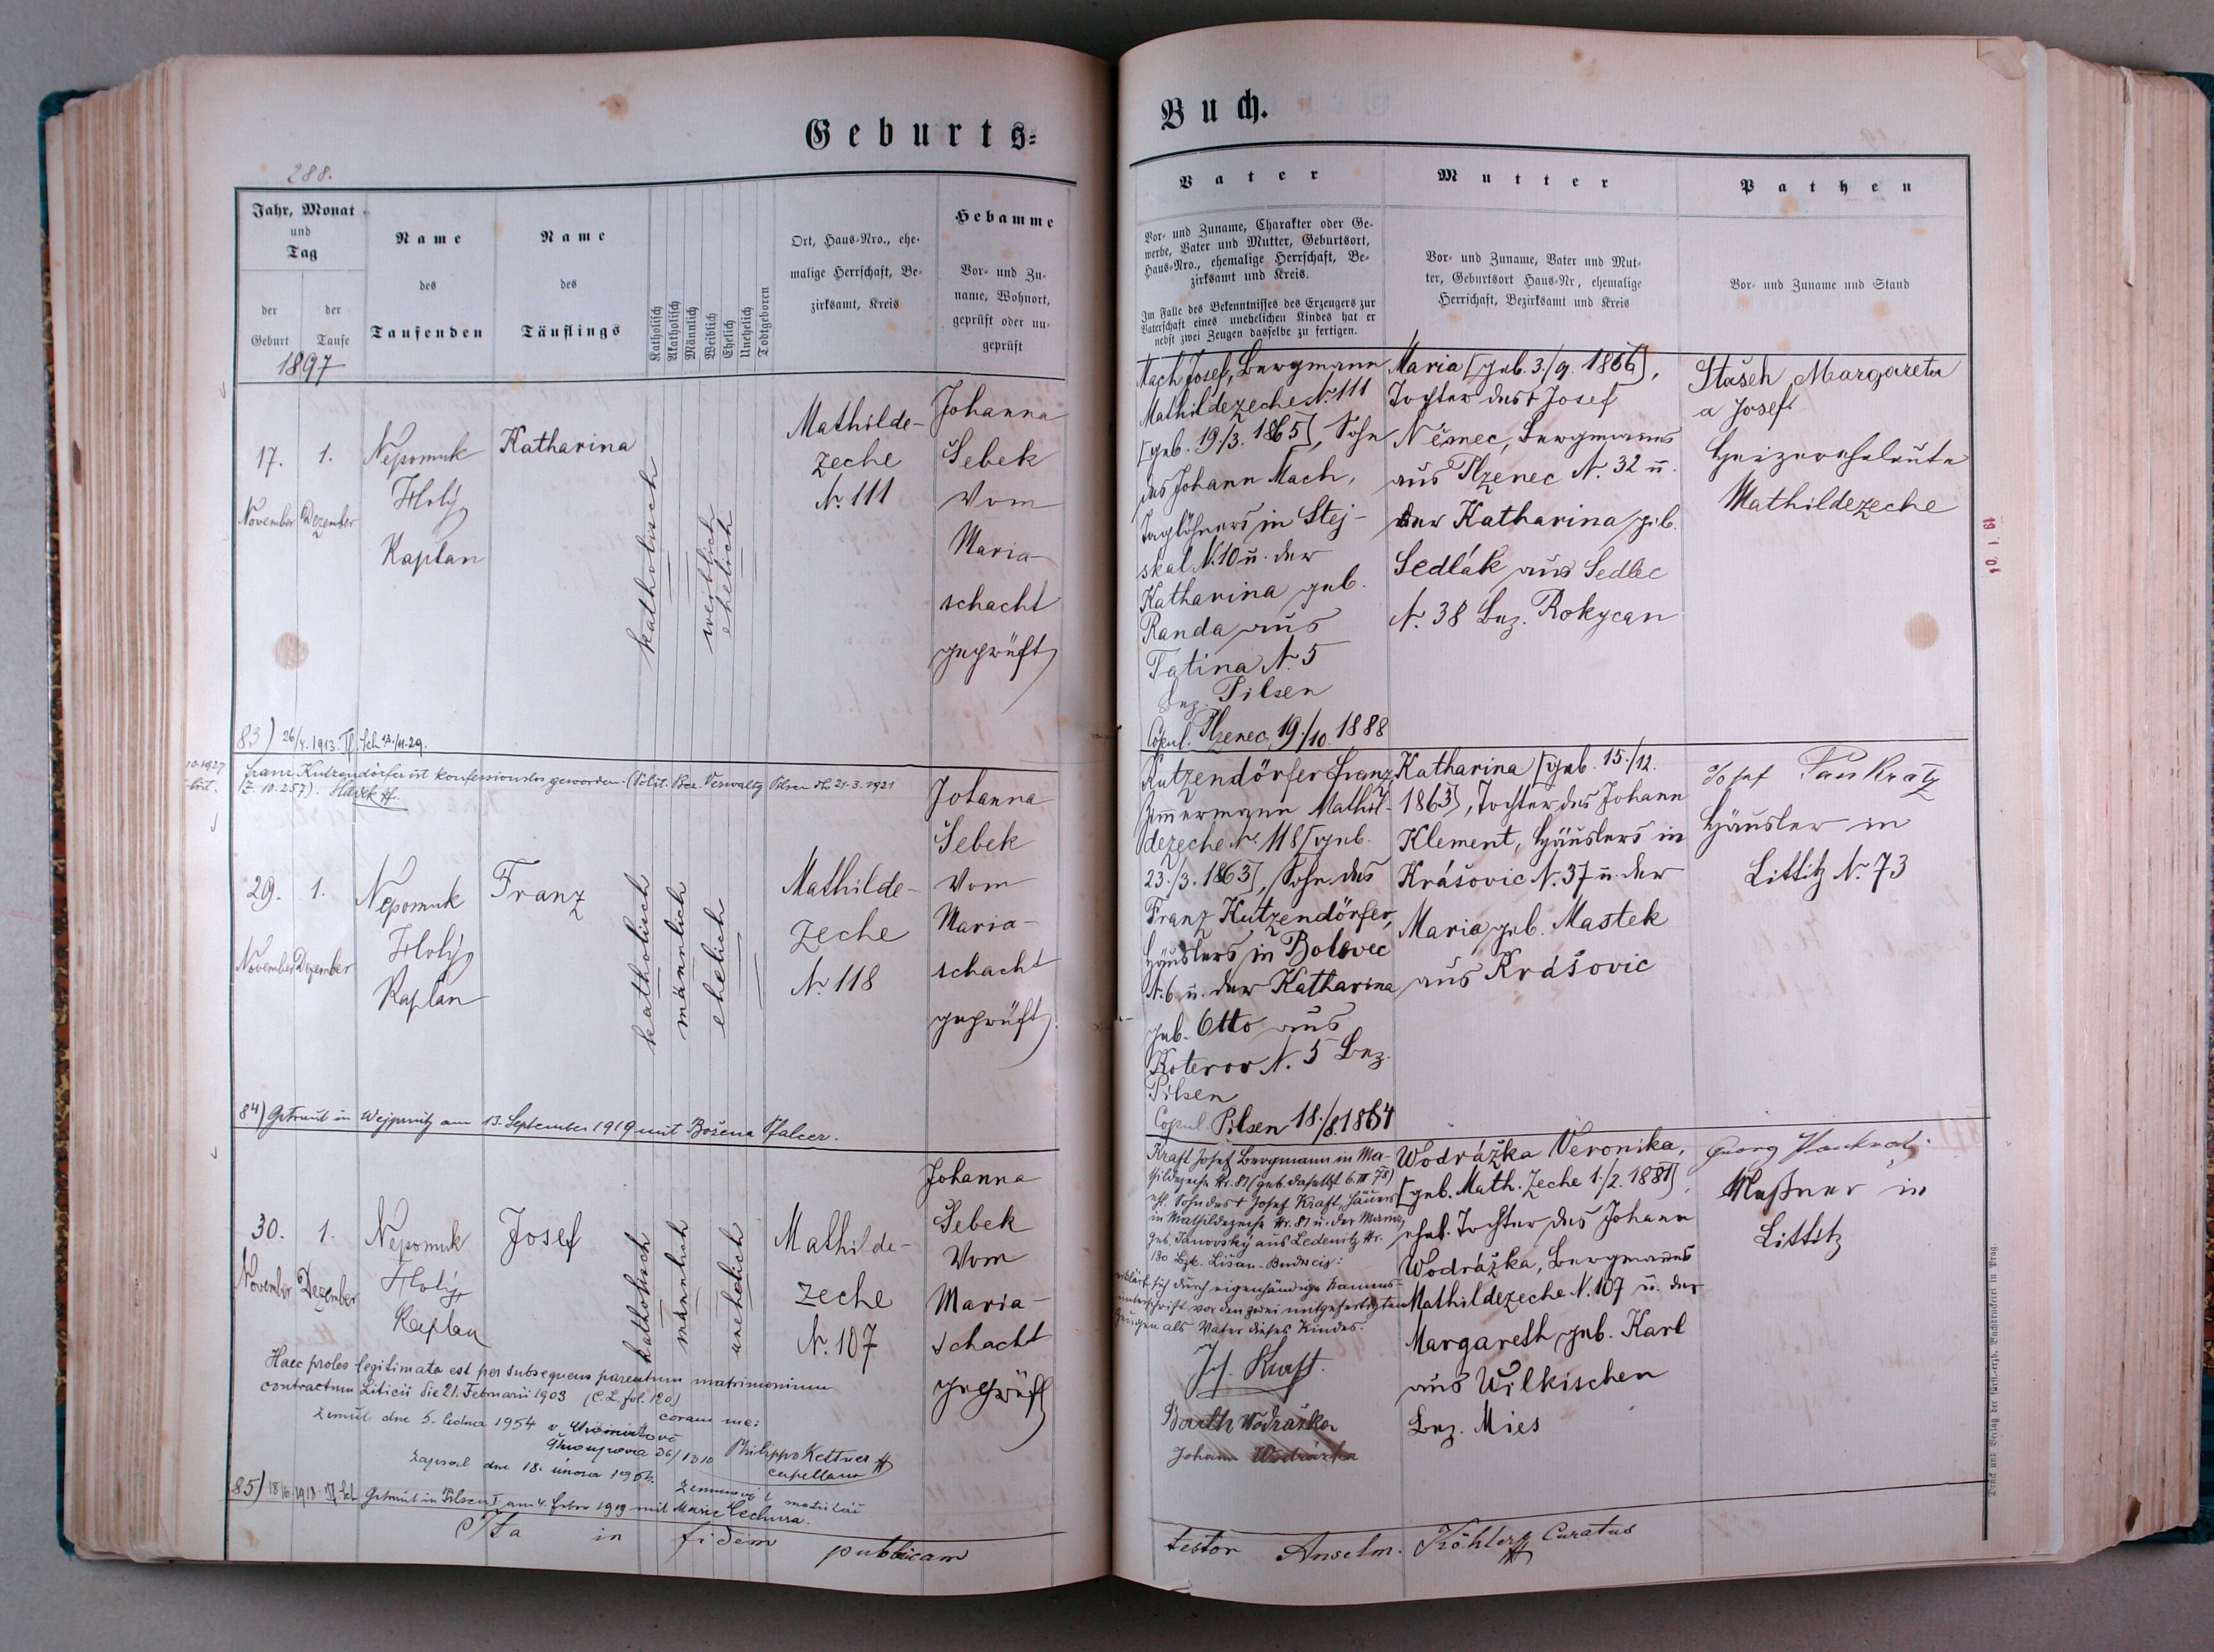 Geburts-
Buch.
288.
Jahr, Monat
und
Tag
der
Geburt
der
Taufe
1897
Name
des
Taufenden
Name
des
Täuflings
Katholisch
Akatholisch
Männlich
Weiblich
Ehelich
Unehelich
Todtgeboren
Ort, Haus-Nro., ehe-
malige Herrschaft, Be-
zirksamt, Kreis
Hebamme
Vor- und Zu-
name, Wohnort,
geprüft oder un-
geprüft
Vater
Vor- und Zuname, Charakter oder Ge-
werbe, Vater und Mutter, Geburtsort,
Haus-Nro., ehemalige Herrschaft, Be-
zirksamt und Kreis.
Im Falle des Bekenntnisses des Erzeugers zur
Vaterschaft eines unehelichen Kindes hat er
nebst zwei Zeugen dasselbe zu fertigen.
Mutter
Vor- und Zuname, Vater und Mut-
ter, Geburtsort Haus-Nr, ehemalige
Herrschaft, Bezirksamt und Kreis
Pathen
Vor- und Zuname und Stand
17.
November
1.
Dezember
Nepomuk
Holý
Kaplan
Katharina
katholisch
weiblich
ehelich
Mathilde-
zeche
N. 111
Johanna
Šebek
vom
Maria-
schacht
geprüft
Mach Josef, Bergmann
Mathildezeche N. 111
[geb. 19./3. 1865], Sohn
des Johann Mach,
Taglöhners in Stej-
skal N. 10 u. der
Katharina geb.
Randa aus
Tatina N. 5
Bez. Pilsen
Copul. Plzenec 19./10. 1888
Maria [geb. 3./9. 1866],
Tochter des + Josef
Němec, Bergmanns
aus Plzenec N. 32 u.
der Katharina geb.
Sedlák aus Sedlec
N. 38 Bez. Rokycan
Stašek Margareta
a Josef
Heizerseheleute
Mathildezeche
10. 1. 61
83) 26/4. 1913.
Franz Kutzendörfer ist konfessionslos geworden. (Polit. Bez. Verwaltg Pilsen dto 21.3.1921
Z. 10.257). Hašek
29.
November
1.
Dezember
Nepomuk
Holý
Kaplan
Franz
katholisch
männlich
ehelich
Mathilde-
zeche
N. 118
Johanna
Šebek
vom
Maria-
schacht
geprüft
Kutzendörfer Franz,
Zimmermann Mathil-
dezeche N. 118 [geb.
23./3. 1863], Sohn des
Franz Kutzendörfer,
Häuslers in Bolevec
N. 6 u. der Katharina
geb. Otto aus
Koterov N. 5 Bez.
Pilsen
Copul. Pilsen 18./8.
Katharina [geb. 15./12.
1863], Tochter des Johann
Klement, Häuslers in
Krašovic N. 37 u. der
Maria geb. Mastek
aus Krašovic
Josef Pankratz
Häusler in
Littitz N. 73
84) Getraut in Wejprnitz am 13. September 1919 mit Božena Pfalcer.
30.
November
1.
Dezember
Nepomuk
Holý
Kaplan
Josef
katholisch
männlich
unehelich
Mathilde-
zeche
N. 107
Johanna
Šebek
vom
Maria-
schacht
geprüft
Kraft Josef Bergmann in Ma-
thildezeche Nr. 81 (geb. daselbst 6. III 78)
ehl. Sohn des + Josef Kraft, Häuers
in Mathildezeche Nr. 81 u. der Maria
geb. Janovský aus Ledenitz Nr.
130 Bzk. Lišau-Budweis:
erklärt sich durch eigenhändige Namens-
unterschrift vor den zwei mitgefertigten
Zeugen als Vater dieses Kindes.
Jos. Kraft.
Barth Wodražka
Johann Wodrážka
Wodrážka Veronika,
[geb. Math. Zeche 1./2. 1881],
ehel. Tochter des Johann
Wodrážka, Bergmannes
Mathildezeche N. 107 u. der
Margareth geb. Karl
aus Wilkischen
Bez. Mies
Georg Pankratz
Meßner in
Littitz
Haec proles legitimata est per subsequens parentum matrimonium
contractum Liticii die 21. Februarii 1903 (C. L. fol. 120)
coram me:
Philippo Kettner
capellano
zemřel dne 5. ledna 1954
zapsal dne 18. února
85) Getraut in Pilsen I am 4. Feber 1919 mit Marie Čechura.
Ita in fidem publicam
testor Anselm. Köhler Curatus
Druck und Verlag der fürst.-erzb. Buchdruckerei in Prag.